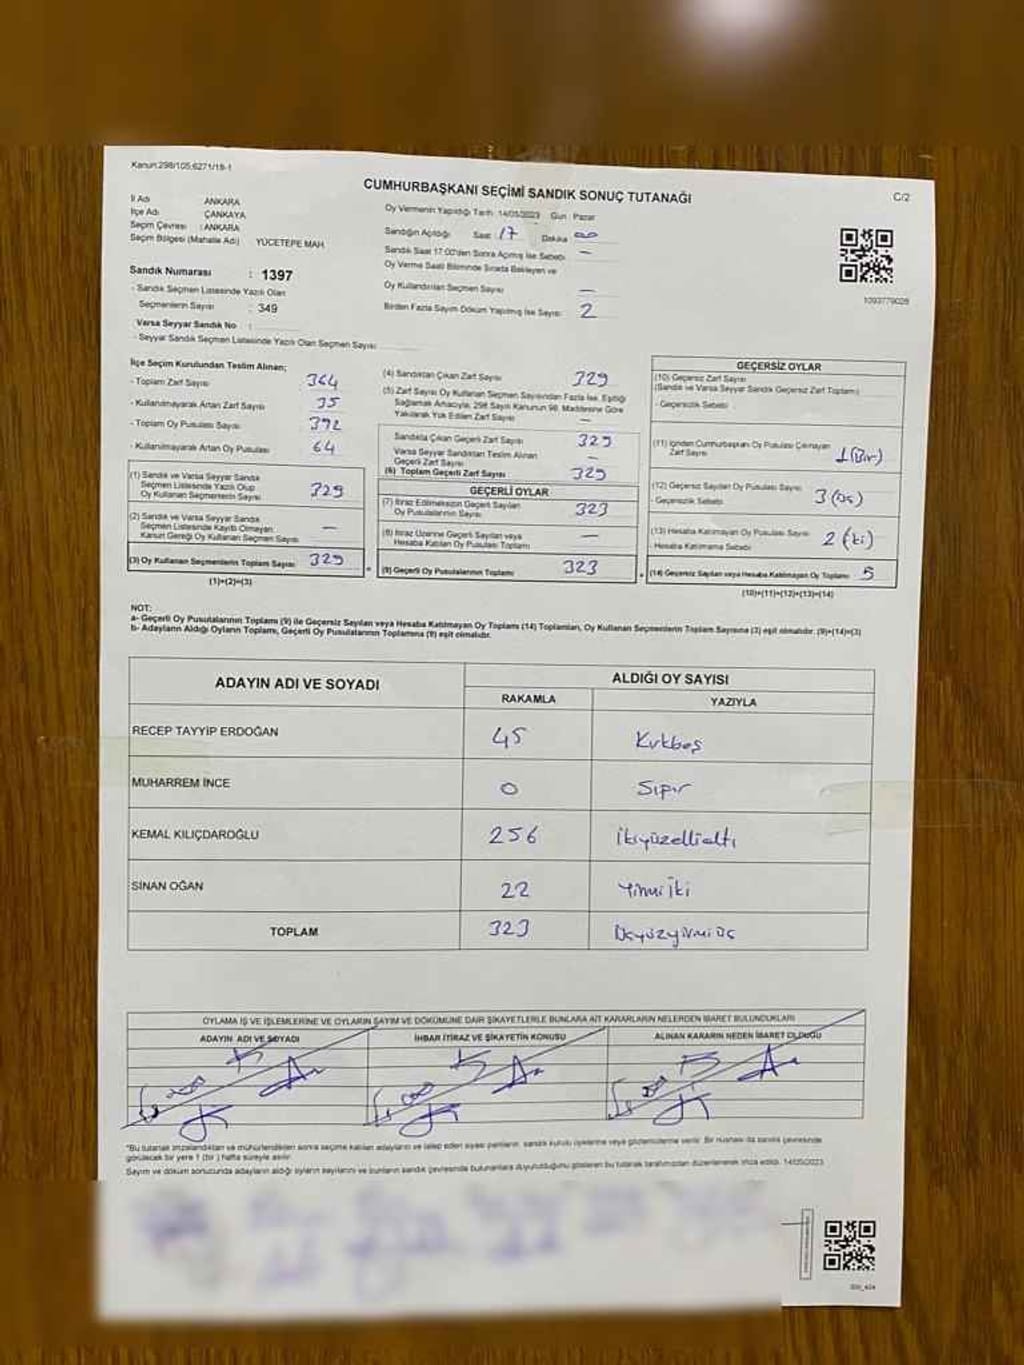 Kanun:298/105,6271/18-1
CUMHURBAŞKANI SEÇİMİ SANDIK SONUÇ TUTANAĞI
C/2
İl Adı ANKARA
İlçe Adı ÇANKAYA
Seçim Çevresi : ANKARA
Seçim Bölgesi (Mahalle Adı) YÜCETEPE MAH.
Sandık Numarası : 1397
- Sandık Seçmen Listesinde Yazılı Olan
Seçmenlerin Sayısı : 349
Varsa Seyyar Sandık No :
- Seyyar Sandık Seçmen Listesinde Yazılı Olan Seçmen Sayısı
Oy Vermenin Yapıldığı Tarih 14/05/2023 Gün : Pazar
Sandığın Açıldığı Saat 17 Dakika 00
Sandık Saat 17:00'den Sonra Açılmış İse Sebebi —
Oy Verme Saati Bitiminde Sırada Bekleyen ve
Oy Kullandırılan Seçmen Sayısı —
Birden Fazla Sayım Döküm Yapılmış İse Sayısı 2
1093779028
İlçe Seçim Kurulundan Teslim Alınan;
- Toplam Zarf Sayısı 364
- Kullanılmayarak Artan Zarf Sayısı 35
- Toplam Oy Pusulası Sayısı 392
- Kullanılmayarak Artan Oy Pusulası 64
(1) Sandık ve Varsa Seyyar Sandık
Seçmen Listesinde Yazılı Olup
Oy Kullanan Seçmenlerin Sayısı 329
(2) Sandık ve Varsa Seyyar Sandık
Seçmen Listesinde Kaydı Olmayan
Kanun Gereği Oy Kullanan Seçmen Sayısı —
(3) Oy Kullanan Seçmenlerin Toplam Sayısı 329
(1)+(2)=(3)
(4) Sandıktan Çıkan Zarf Sayısı 329
(5) Zarf Sayısı Oy Kullanan Seçmen Sayısından Fazla İse, Eşitliği
Sağlamak Amacıyla, 298 Sayılı Kanunun 98. Maddesine Göre
Yakılarak Yok Edilen Zarf Sayısı —
Sandıkta Çıkan Geçerli Zarf Sayısı 329
Varsa Seyyar Sandıktan Teslim Alınan
Geçerli Zarf Sayısı —
(6) Toplam Geçerli Zarf Sayısı 329
GEÇERLİ OYLAR
(7) İtiraz Edilmeksizin Geçerli Sayılan
Oy Pusulalarının Sayısı 323
(8) İtiraz Üzerine Geçerli Sayılan veya
Hesaba Katılan Oy Pusulası Toplamı —
(9) Geçerli Oy Pusulalarının Toplamı 323
GEÇERSİZ OYLAR
(10) Geçersiz Zarf Sayısı
(Sandık ve Varsa Seyyar Sandık Geçersiz Zarf Toplamı)
- Geçersizlik Sebebi
(11) İçinden Cumhurbaşkanı Oy Pusulası Çıkmayan
Zarf Sayısı 1 (Bir)
(12) Geçersiz Sayılan Oy Pusulası Sayısı
- Geçersizlik Sebebi 3 (üç)
(13) Hesaba Katılmayan Oy Pusulası Sayısı 2 (iki)
- Hesaba Katılmama Sebebi
(14) Geçersiz Sayılan veya Hesaba Katılmayan Oy Toplamı 5
(10)+(11)+(12)+(13)=(14)
NOT:
a- Geçerli Oy Pusulalarının Toplamı (9) ile Geçersiz Sayılan veya Hesaba Katılmayan Oy Toplamı (14) Toplamları, Oy Kullanan Seçmenlerin Toplam Sayısına (3) eşit olmalıdır. (9)+(14)=(3)
b- Adayların Aldığı Oyların Toplamı, Geçerli Oy Pusulalarının Toplamına (9) eşit olmalıdır.
ADAYIN ADI VE SOYADI ALDIĞI OY SAYISI
RAKAMLA YAZIYLA
RECEP TAYYİP ERDOĞAN 45 Kırkbeş
MUHARREM İNCE 0 Sıfır
KEMAL KILIÇDAROĞLU 256 İkiyüzellialtı
SİNAN OĞAN 22 Yirmi iki
TOPLAM 323 Üçyüzyirmiüç
OYLAMA İŞ VE İŞLEMLERİNE VE OYLARIN SAYIM VE DÖKÜMÜNE DAİR ŞİKAYETLERLE BUNLARA AİT KARARLARIN NELERDEN İBARET BULUNDUKLARI
ADAYIN ADI VE SOYADI İHBAR İTİRAZ VE ŞİKAYETİN KONUSU ALINAN KARARIN NEDEN İBARET OLDUĞU
*Bu tutanak imzalandıktan ve mühürlendikten sonra seçime katılan adayların ve talep eden siyasi partilerin, sandık kurulu üyelerine veya gözlemcilerine verilir. Bir nüshası da sandık çevresinde
görülecek bir yere 1 (bir) hafta süreyle asılır.
Sayım ve döküm sonucunda adayların aldığı oyların sayılarını ve bunların sandık çevresinde bulunanlara duyurulduğunu gösteren bu tutanak tarafımızdan düzenlenerek imza edildi. 14/05/2023